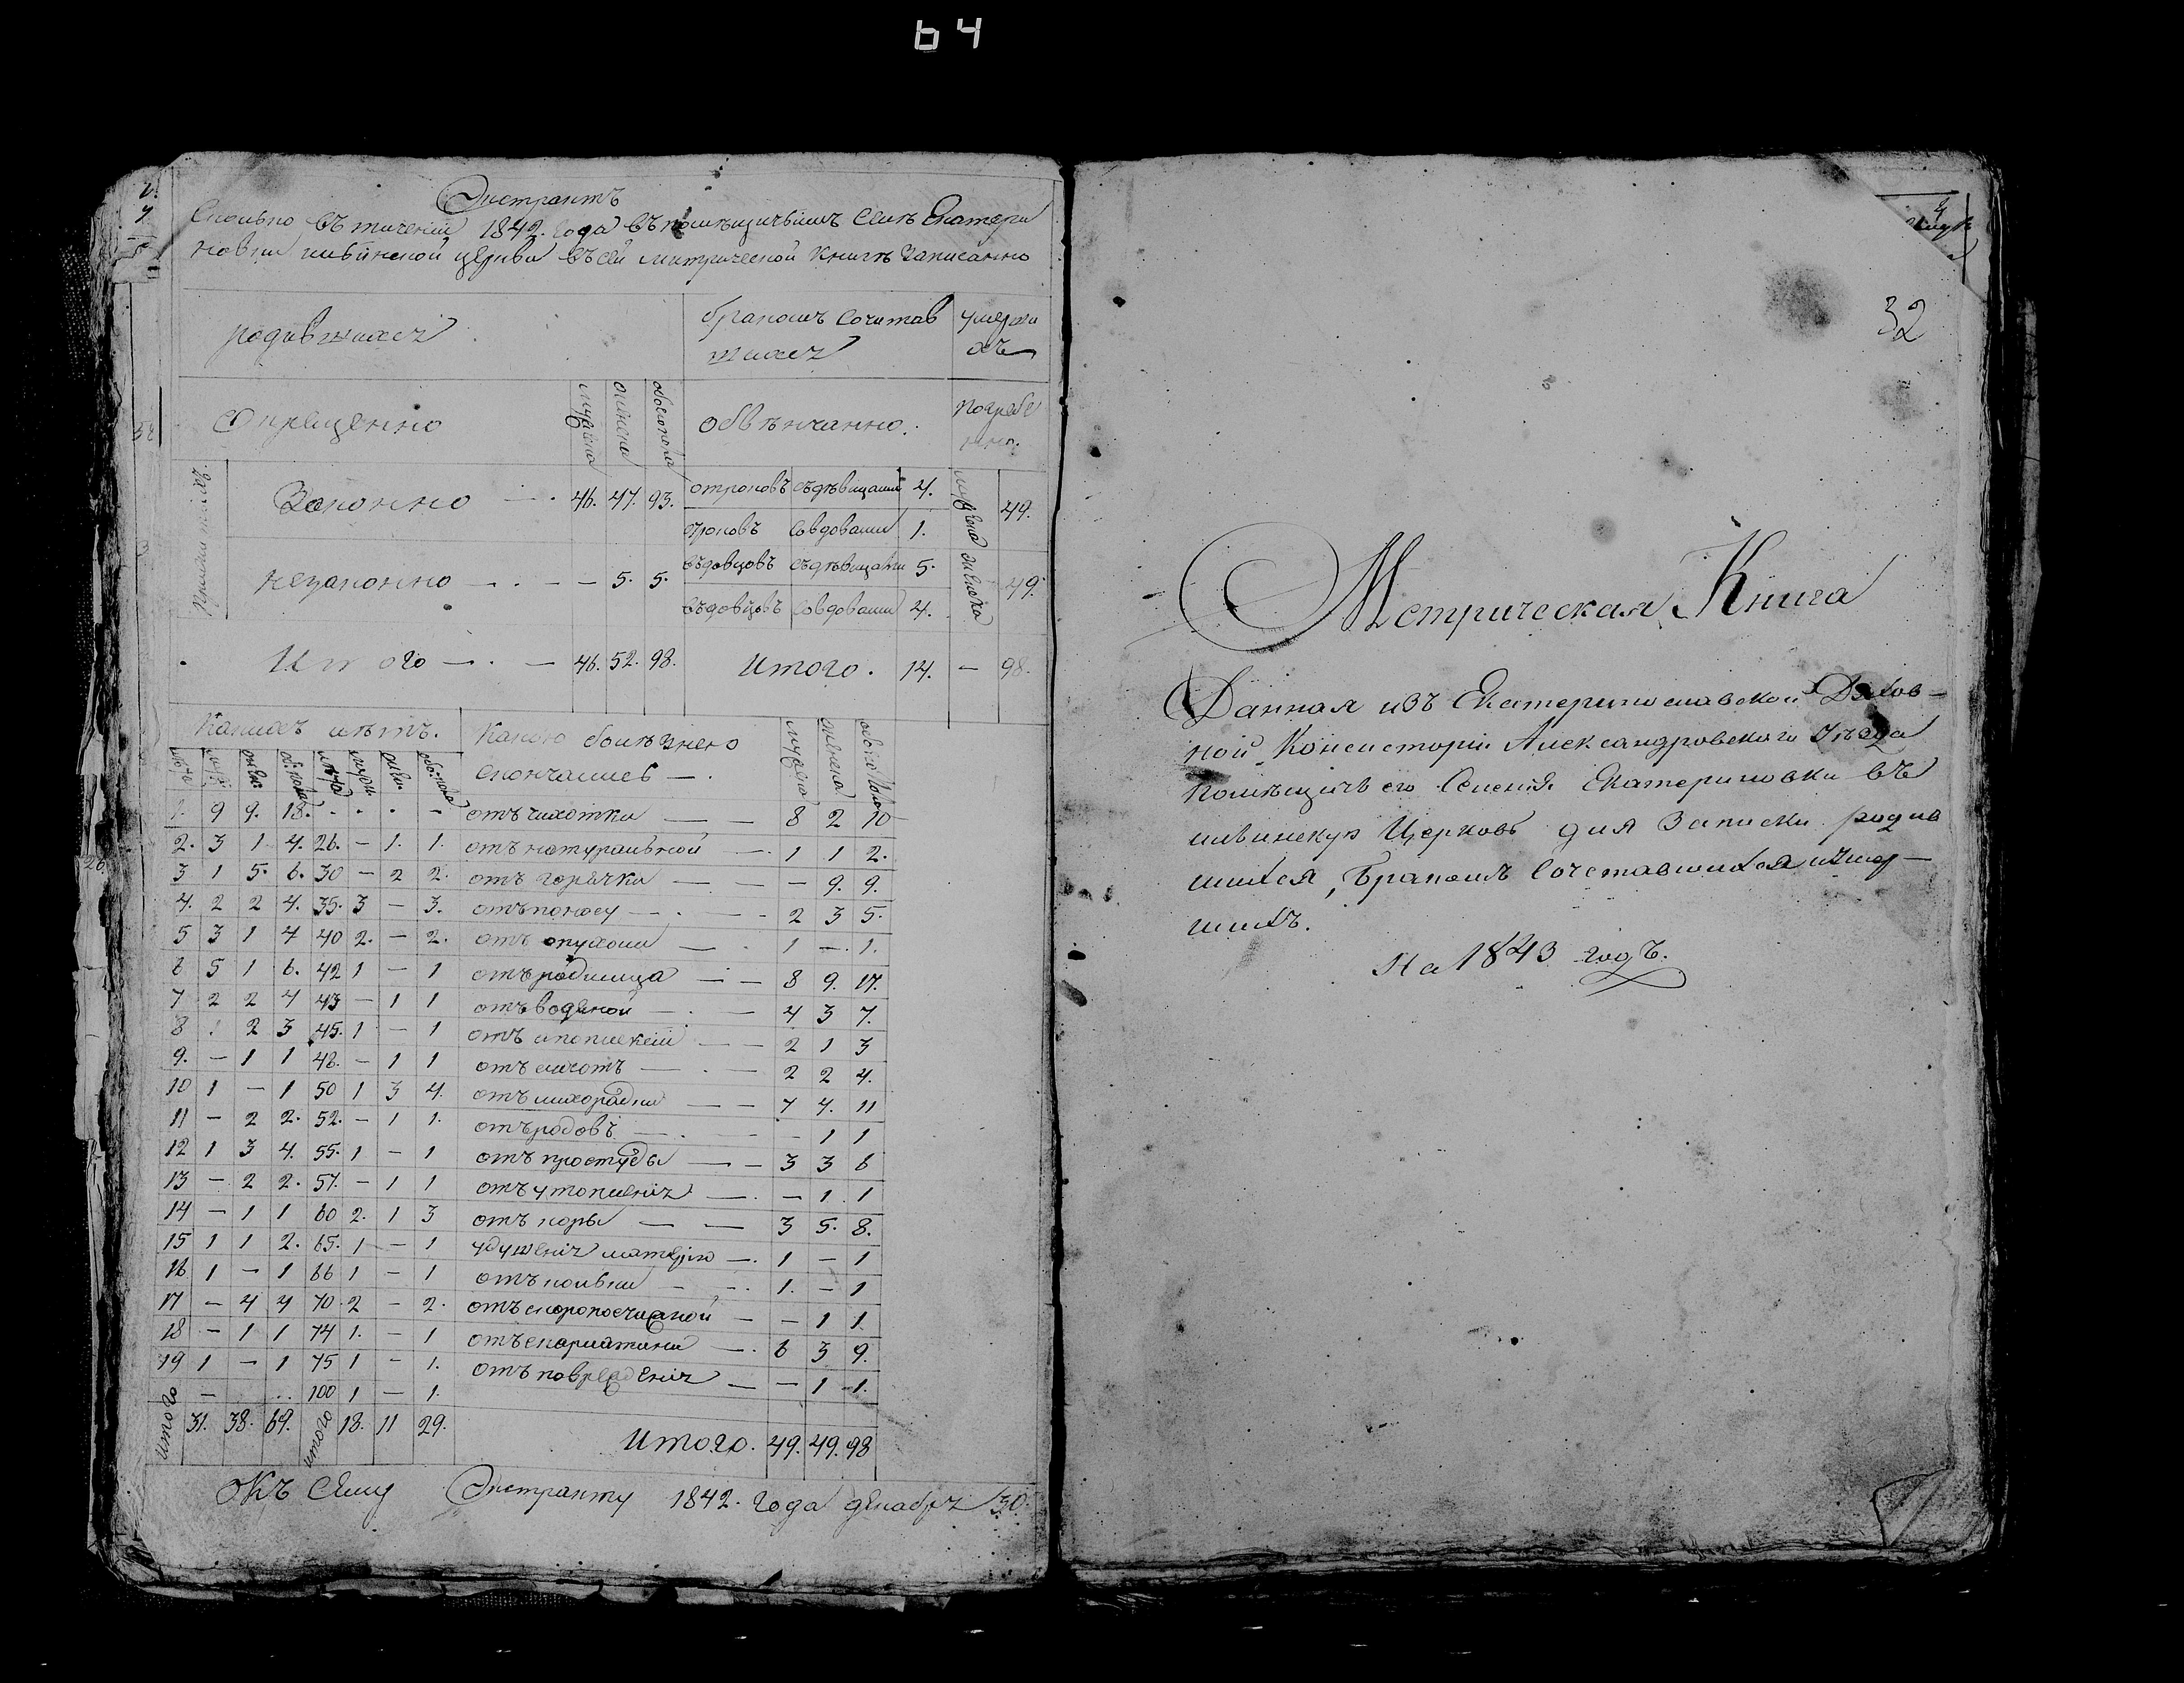 64
Экстрактъ
Сколько въ течении 1842. года въ помѣщичьимъ Селѣ Екатери
новки ильинской церкви въ сей метрической книгѣ записанно
родившихся
бракомъ сочитав
шихся
умерши
хъ
Окрещенно
мужеска
женска
обоего пола
обвѣнчанно.
погребе
нно.
Законно — . 46. 47. 93.
отроковъ съ дѣвицами 4.
мужеска 49.
отроковъ со вдовами 1.
незаконно — . — — 5. 5.
въдовцовъ съ дѣвицами 5.
женска 49.
въдовцовъ со вдовами 4.
Итого — . — 46. 52. 98.
Итого. 14. — 98.
Какихъ лѣтъ.
Какою болѣзнею
скончались — .
1. 9 9. 18. . . . — отъ чахотки — — 8 2 10
2. 3 1 4. 26. — 1. 1. отъ натуральной — . 1 1 2.
3 1 5. 6. 30 — 2 2. отъ горячки — — — 9. 9.
4. 2 2 4. 35. 3 — 3. отъ поносу — . — - 2 3 5.
5 3 1 4 40 2. — 2. отъ опухоли — . 1 — . 1.
6 5 1 6. 42 1 — 1 отъ родимца — . — 8 9. 17.
7 2 2 4 43 — 1 1 отъ водяной — . — 4 3 7.
8 1 2 3 45. 1 — 1 отъ апоплексии — — 2 1 3
9. — 1 1 48. — 1 1 отъ — . — 2 2 4.
10 1 — 1 50 1 3 4. отъ лихорадки — — 7 4. 11
11 — 2 2. 52. — 1 1. отъ родовъ — . — - 1 1
12 1 3 4. 55. 1 — 1 отъ простуды — . — 3 3 6
13 — 2 2. 57. — 1 1 отъ утопления — . — 1. 1
14 — 1 1 60 2. 1 3 отъ коры — — 3 5. 8.
15 1 1 2. 65. 1 — 1 удушения матерію — . 1 — 1
16 1 — 1 66 1 — 1 отъ — — . 1. — 1
17 — 4 4 70. 2 — 2. отъ скоропостижной — — 1 1.
18 — 1 1 74 1. — 1 отъ скарлатини — . 6 3 9.
19 1 — 1 75 1 — 1. отъ повреждения — — 1 1.
— . . 100 1 — 1.
итого 31. 38. 69. итого 18. 11 29.
Итого. 49. 49. 98
Къ Сему Экстракту 1842. года декабря 30.
32
Метрическая Книга
Данная изъ Екатеринославской Духов-
ной Консисторіи Александровскаго Уѣзда
помѣщичьего Селенія Екатериновки въ
ильинскую Церковь для Записки родив
шихся, бракомъ Сочетавшихся и умер-
шихъ.
На 1843 годъ.